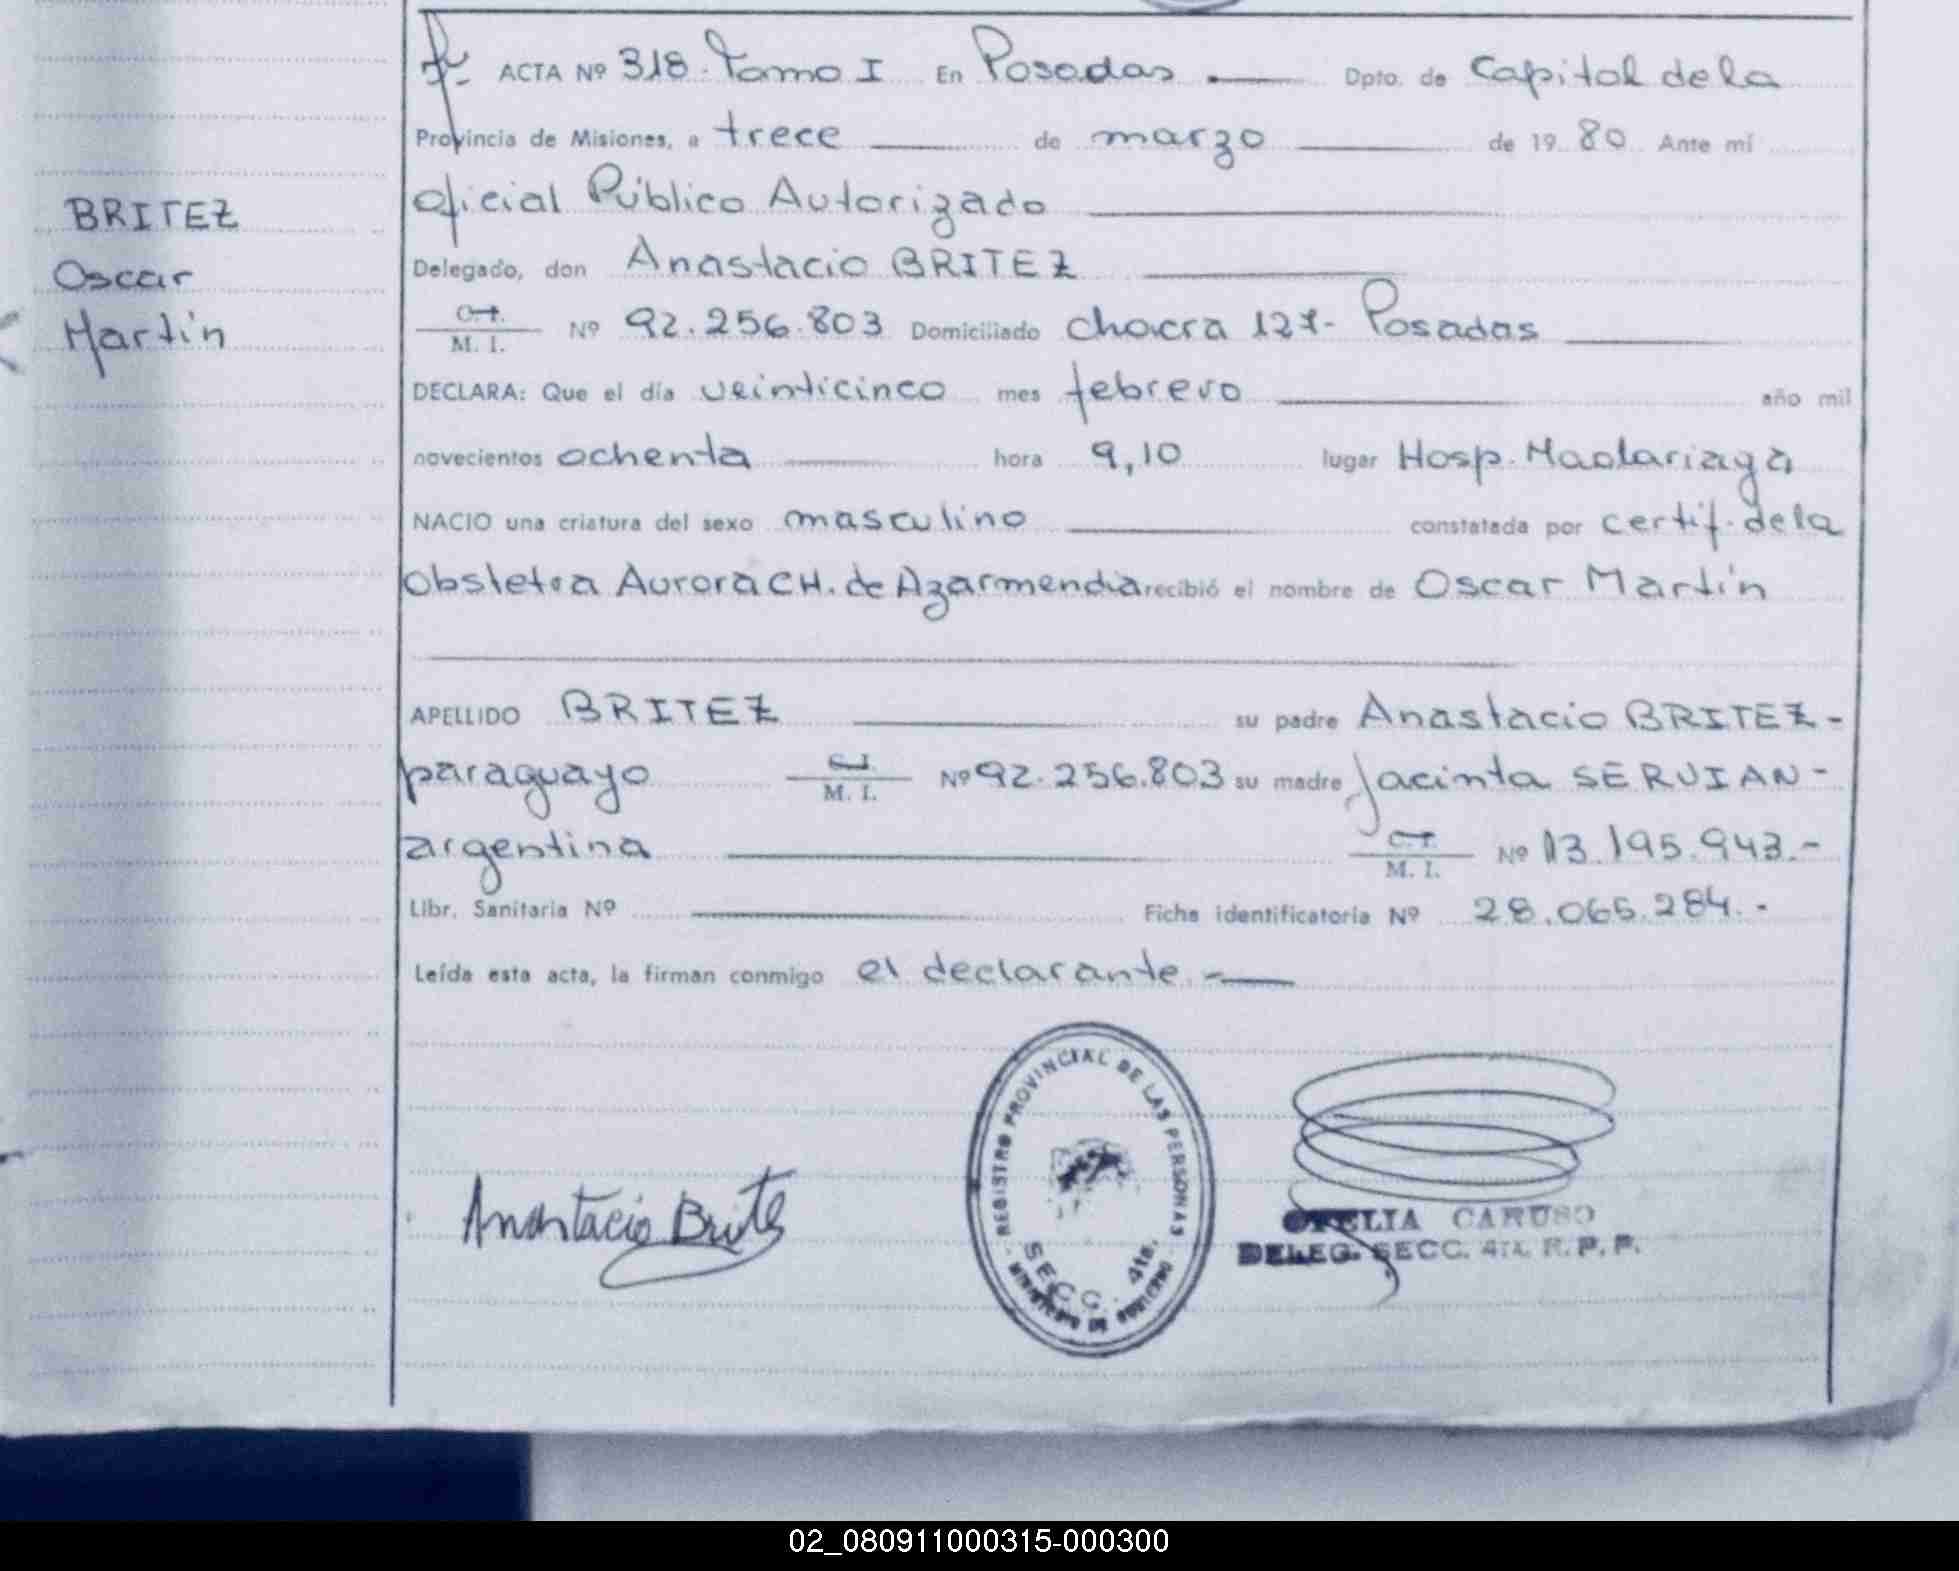 ACTA Nº 318. Tomo I En Posadas. Dpto. de Capital de la
Provincia de Misiones, a trece de marzo de 1980 Ante mí
Oficial Público Autorizado
Delegado, don Anastacio BRITEZ
C.I.
M. I. Nº 92.256.803 Domiciliado chacra 127- Posadas
DECLARA: Que el día veinticinco mes febrero año mil
novecientos ochenta hora 9,10 lugar Hosp. Madariaga
NACIO una criatura del sexo masculino constatada por certif. de la
Obstetra Aurora CH. de Azarmendia recibió el nombre de Oscar Martín
APELLIDO BRITEZ su padre Anastacio BRITEZ-
paraguayo C.I. M. I. Nº 92.256.803 su madre Jacinta SERVIAN-
argentina C.I. M. I. Nº 13.195.943.-
Libr. Sanitaria Nº Ficha identificatoria Nº 28.065.284.-
Leída esta acta, la firman conmigo el declarante.-
BRITEZ
Oscar
Martín
Anastacio Britez
REGISTRO PROVINCIAL DE LAS PERSONAS
SECC. 4ta.
MINISTERIO DE GOBIERNO
OFELIA CARUSO
DELEG. SECC. 4TA. R. P. P.
02_080911000315-000300